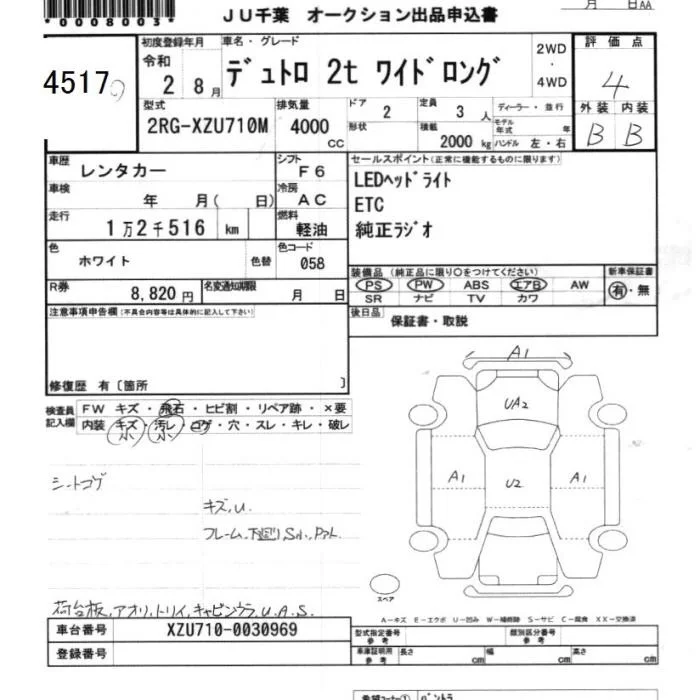 *0008003*
JU千葉 オークション出品申込書
月 日AA
4517
初度登録年月 令和 2 8月
車名・グレード デュトロ 2t ワイドロング
2WD ・ 4WD
評価点 4
外装 内装
B B
型式 2RG-XZU710M
排気量 4000 cc
ドア 2
形状
定員 3 人
積載 2000 kg
ディーラー・並行
モデル年式 年
ハンドル 左・右
車歴 レンタカー
シフト F6
車検 年 月( 日)
冷房 AC
走行 1万2千516 km
燃料 軽油
色 ホワイト 色替
色コード 058
R券 8,820 円
名変通知期限 月 日
セールスポイント(正常に機能するものに限ります)
LEDヘッドライト
ETC
純正ラジオ
装備品(純正品に限り○をつけてください)
PS PW ABS エアB AW
SR ナビ TV カワ
新車保証書
有・無
後日品 保証書・取説
注意事項申告欄(不具合内容等は具体的に記入して下さい)
修復歴 有〔箇所 〕
検査員記入欄
FW キズ・飛石・ヒビ割・リペア跡・×要
内装 キズ・汚レ・コゲ・穴・スレ・キレ・破レ
小 小
シートコゲ
キズ,U.
荷台板,アオリ,トリイ,キャビンウラ,U.A.S.
A1
UA2
A1
U2
A1
スペア
A-キズ E-エクボ U-凹み W-補修跡 S-サビ C-腐食 XX-交換済
車台番号 XZU710-0030969
登録番号
型式指定番号 参考
類別区分番号 参考
車庫証明用 参考
長さ cm
幅 cm
高さ cm
希望コーナー①
バントラ